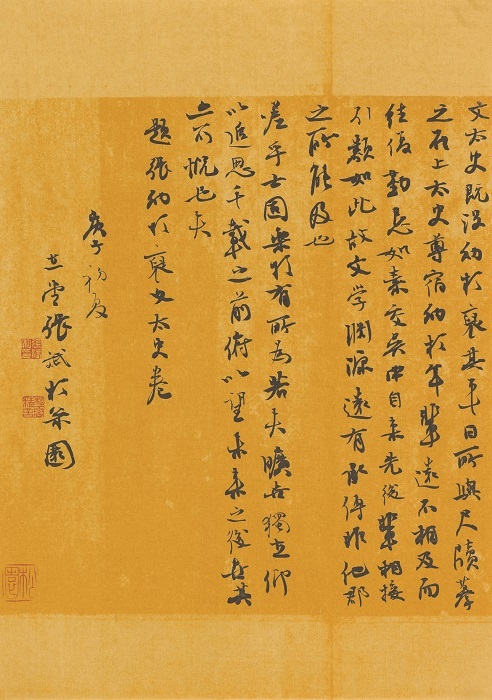 文太史既没幼於裒其平日所與尺牘摹
之石上太史尊宿幼於年輩遠不相及而
往復勤懇如素交吳中自來先後輩相接
引類如此故文学淵源遠有承傳非他郡
之所能及也
嗟乎士固樂於有所為若夫曠世獨立仰
以追思千載之前俯以望未來之後世其
亦可慨也夫
題張幼於裒文太史卷
庚子初夏
張斌於園